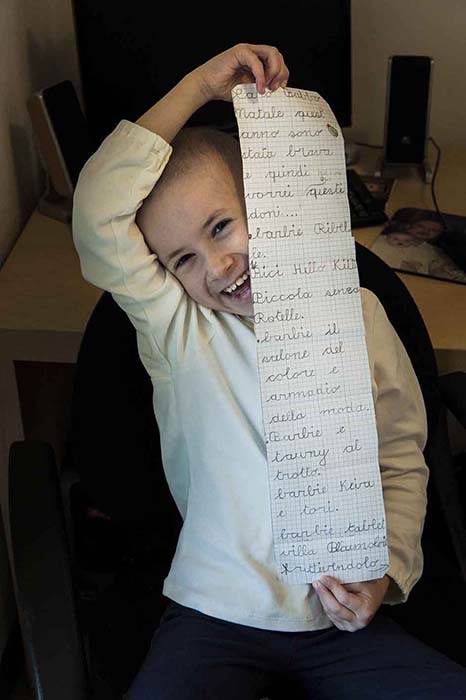 Caro babbo
Natale quest
anno sono
stata brava
e quindi
vorrei questi
doni...
.barbie Ribel
le.
.Bici Hillo Kitt
Piccola senza
Rotelle.
.barbie il
salone del
colore e
armadio
della moda.
.Barbie e
tawny al
trotto.
barbie Keira
e tori.
barbie tablet
villa Plaumobi
fruttivindolo